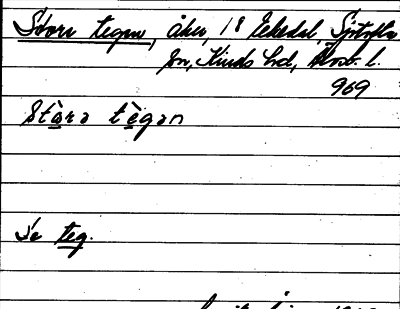 Stora tegen, åker, 18 Ekedal, Sjötofta
sn, Kinds hd, Älvsb. l.
969
stòra tègan
Se teg.